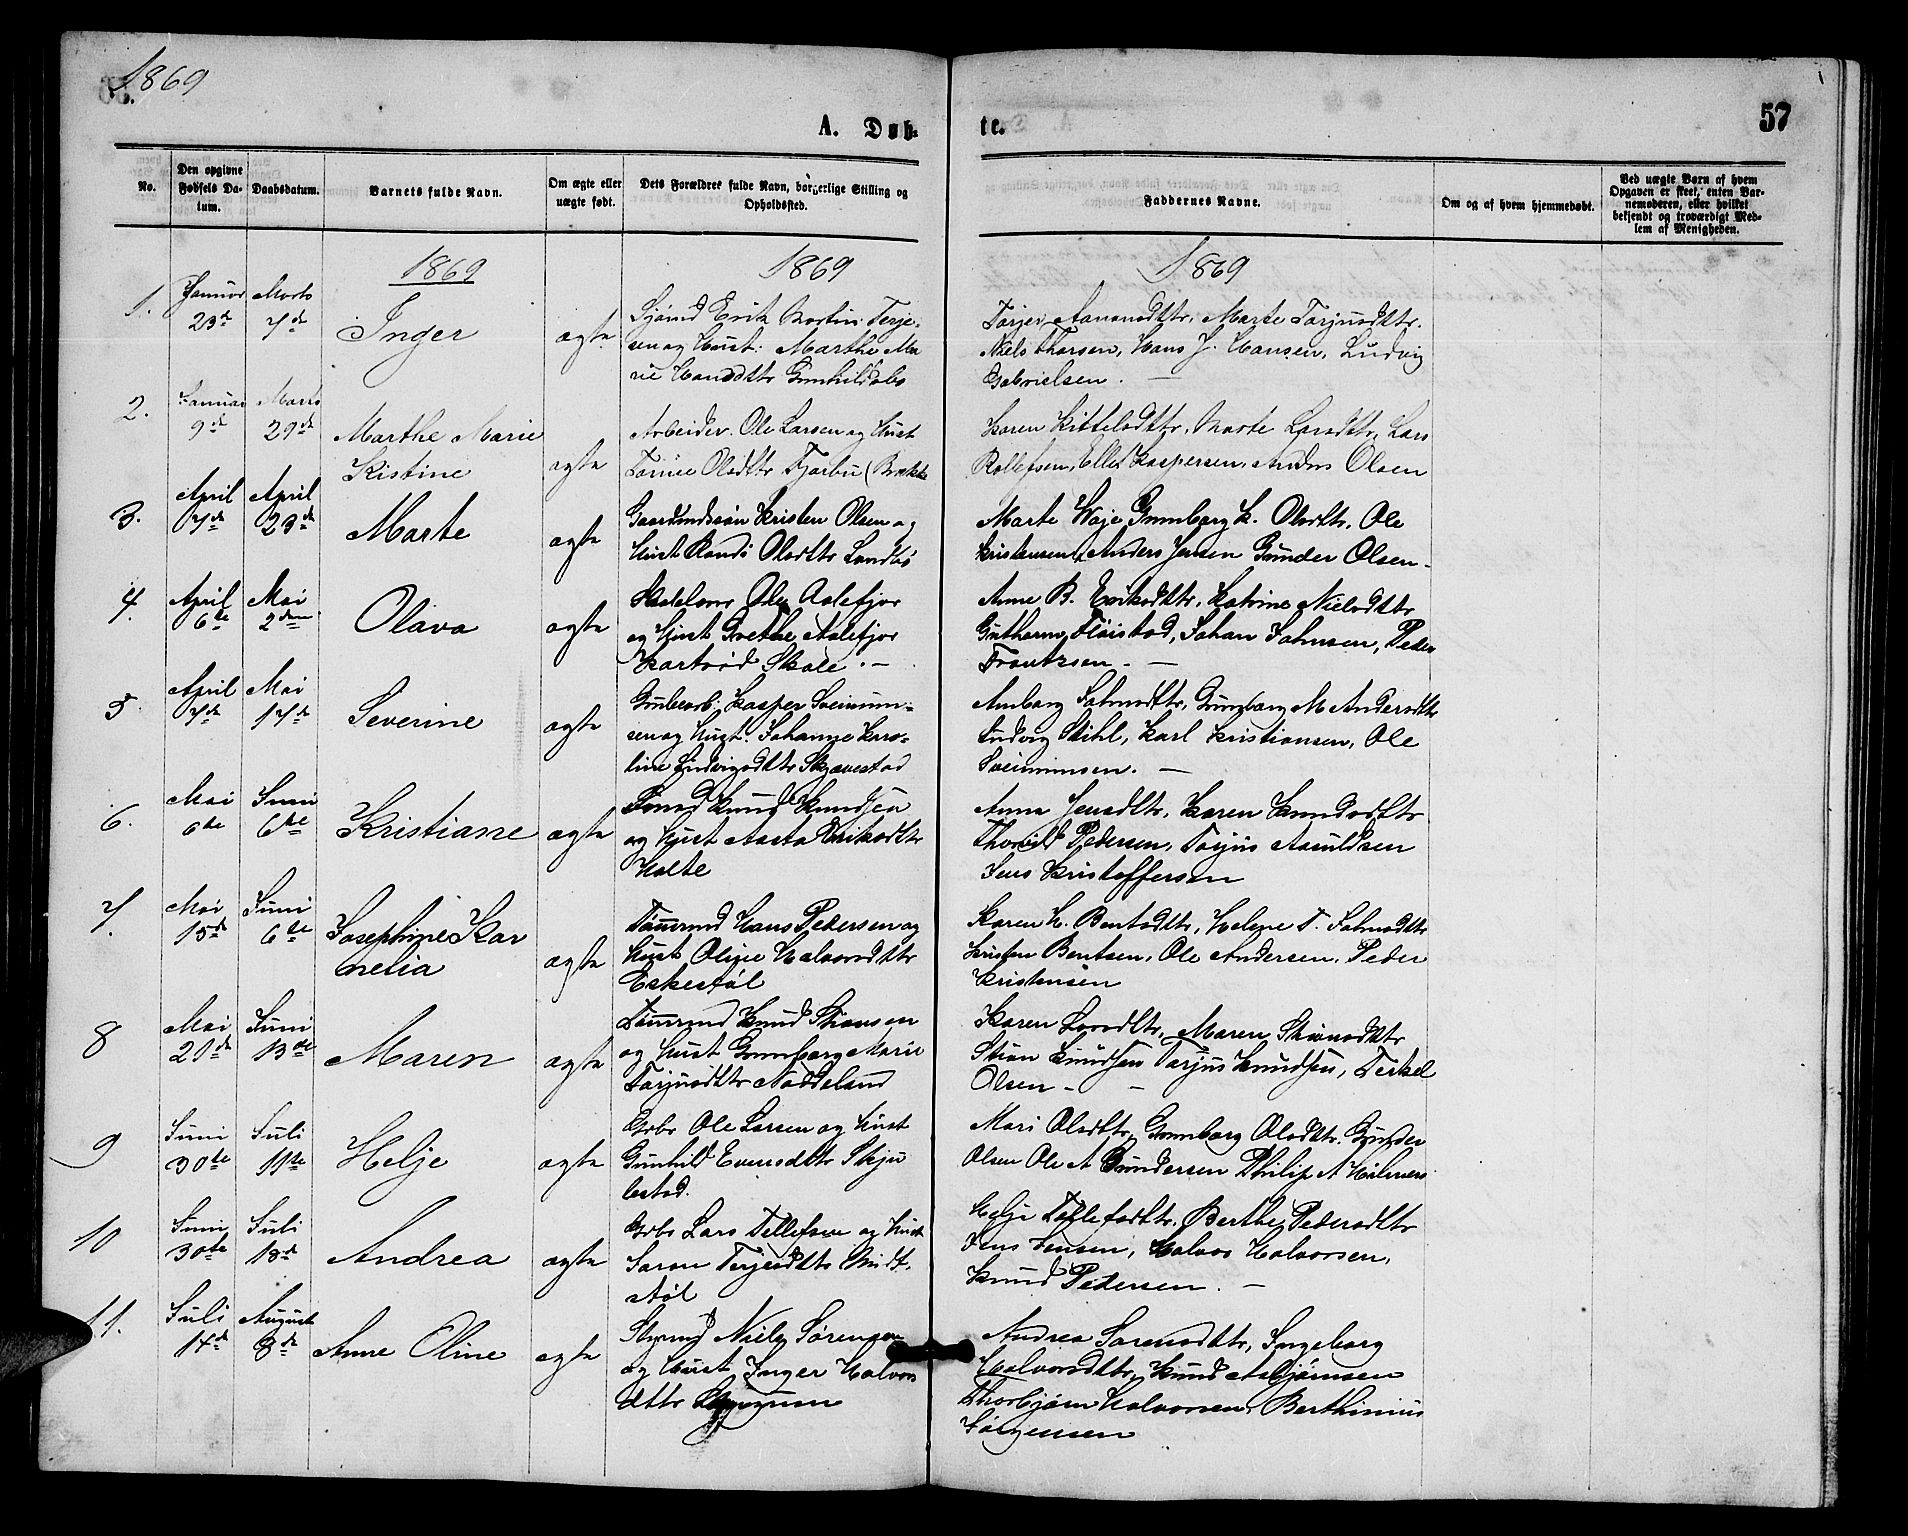 1869
A. Døb-
te.
57
No.
Den opgivne Fødsels Da-tum.
Daabsdatum.
Barnets fulde Navn.
Om ægte eller uægte født.
Dets Forældres fulde Navn, borgerlige Stilling og Opholdssted.
Faddernes Navne.
Om og af hvem hjemmedøbt.
Ved uægte Børn af hvem Opgaven er skeet, enten Bar-nemoderen, eller hvilket bekjendt og troværdigt Med-lem af Menigheden.
1869
1869
1869
1.
Januar 23de
Marts 7de
Inger
ægte
Sjømd Erik Martin Terje-
sen og Hust: Marthe Ma
rie Hansdttr
Torjer Aanonsdttr, Marte Torjusdttr.
Niels Thorsen, Hans J. Hansen, Ludvig
Gabrielsen. —
2.
Januar 9de
Marts 29de
Marthe Marie
Kistine
ægte
Arbeider. Ole Larsen og Hust
Tomine Olsdttr
Karen Kittelsdttr, Marte Larsdttr, Lars
Rollefsen, Ellef Kaspersen, Anders Olsen
3.
April 7de
April 23de
Marte
ægte
Gaardmdssøn Kristen Olsen og
Hust Randi Olsdttr Landbø
Marte Waje Gunborg K. Olsdttr, Ole
Kristensen, Anders Jensen Gunder Olsen -
4.
April 6te
Mai 2den
Olava
ægte
Ole Aalefjær
og Hust Grethe Aalefjær
Skole. —
Anne B. Eriksdttr, Katrine Nielsdttr
Guthorm Fløistad, Johan Johnsen, Peder
Frantzsen. —
5
April 7de
Mai 17de
Severine
ægte
Grubearb. Kasper Sveinum-
sen og Hust. Johanne Karo-
line Ludvigsdttr Skjævestad
Amborg Johnsdttr, Gunborg M Andersdttr
Ludvig Stihl, Karl Kristiansen, Ole
Sveinumsen. —
6.
Mai 6te
Juni 6te
Kristiane
ægte
Knud Knudsen
og Hust Aasta Eriksdttr
Holte
Anna Jensdttr, Karen Knudsdttr
Pedersen, Torjus Aasuldsen
Jens Kristoffersen
7.
Mai 15de
Juni 6te
Josephine Kor
nelia
ægte
Tømrmd Hans Pedersen og
Hust Oline Halvorsdttr
Eskestøl
Karen H. Bentsdttr, Helene T. Johnsdttr
Kristen Bentsen, Ole Andersen, Peder
Kristensen
8
Mai 21de
Juni 13de
Maren
ægte
Tømrmd Knud Stiansen
og Hust Gunborg Marie
Torjusdttr Noddeland
Karen Larsdttr, Maren Stiansdttr
Stian Knudsen Torjus Knudsen, Terkel
Olsen - -
9
Juni 30te
Juli 11te
Helje
ægte
Gbr Ole Larsen og Hust
Gunhild Evensdttr Skju
lestad.
Mari Olsdttr, Gunborg Olsdttr. Gunder
Olsen Ole A Gundersen Philip A Hilmers
10
Juni 30te
Juli 18de
Andrea
ægte
Gbr Lars Tellefsen og Hust
Saron Terjesdttr Midt-
støl
Helje Tellefsdttr, Berthe Pedersdttr
Jens Jensen, Halvor Halvorsen,
Knud Pedersen. —
11.
Juli 14de
August 8de
Anne Oline
ægte
Styrmd Niels Sørensen
og Hust Inger Halvors
dttr
Andrea Sørensdttr, Ingeborg
Halvorsdttr, Knud Asbjørnsen
Thorbjørn Halvorsen, Berthinius
Jørgensen